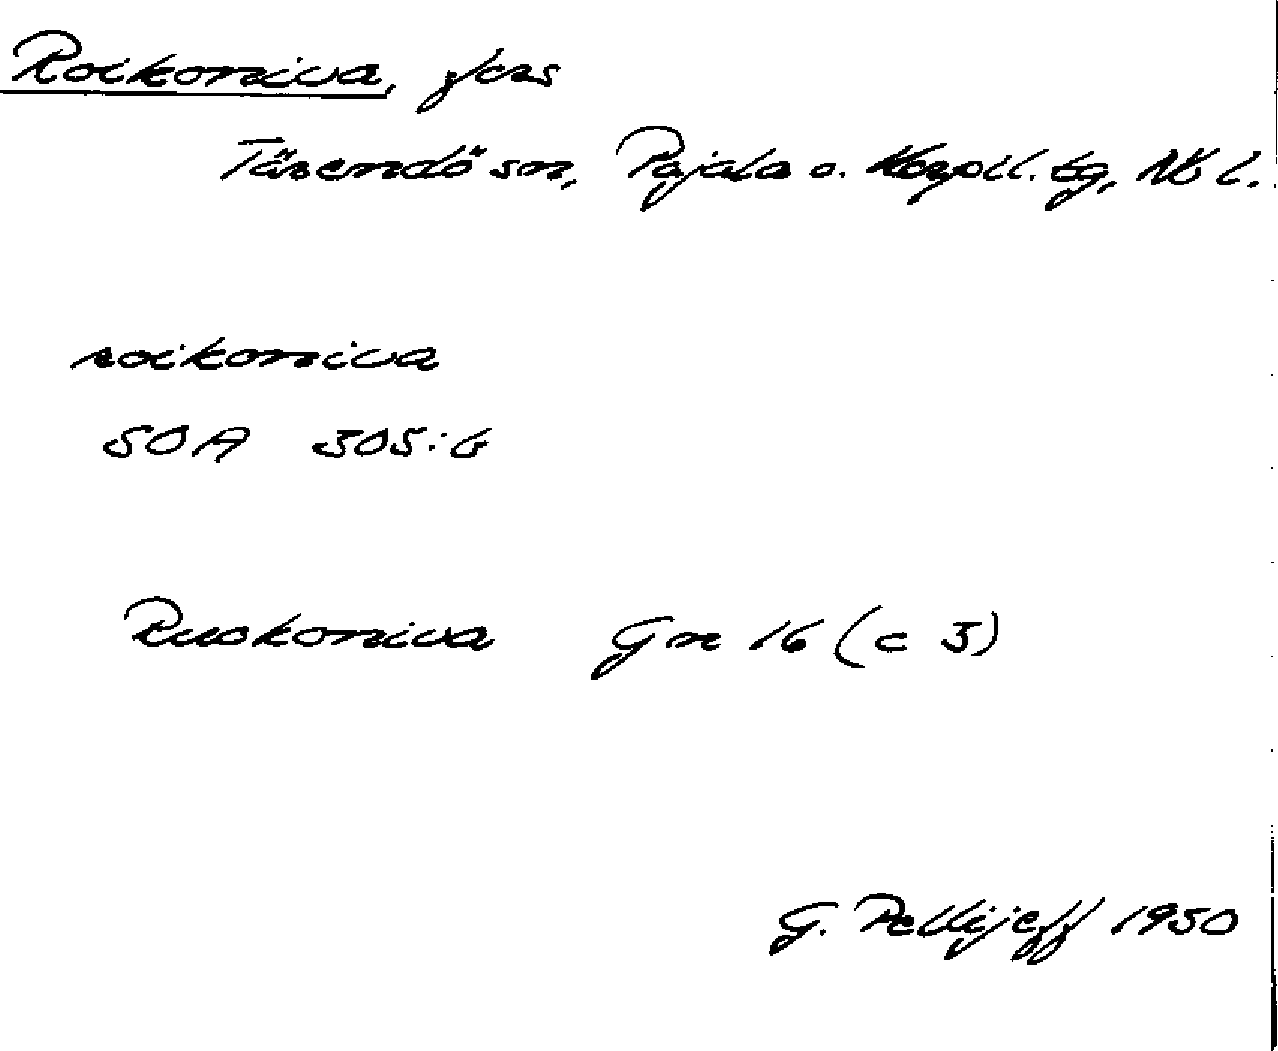 Roikoniva, fors
Tärendö sn, Pajala o. Korpil. tg, Nb l.
roikoniva
SOA 305:6
Ruokoniva Gm 16 (c 3)
G. Pellijeff 1950